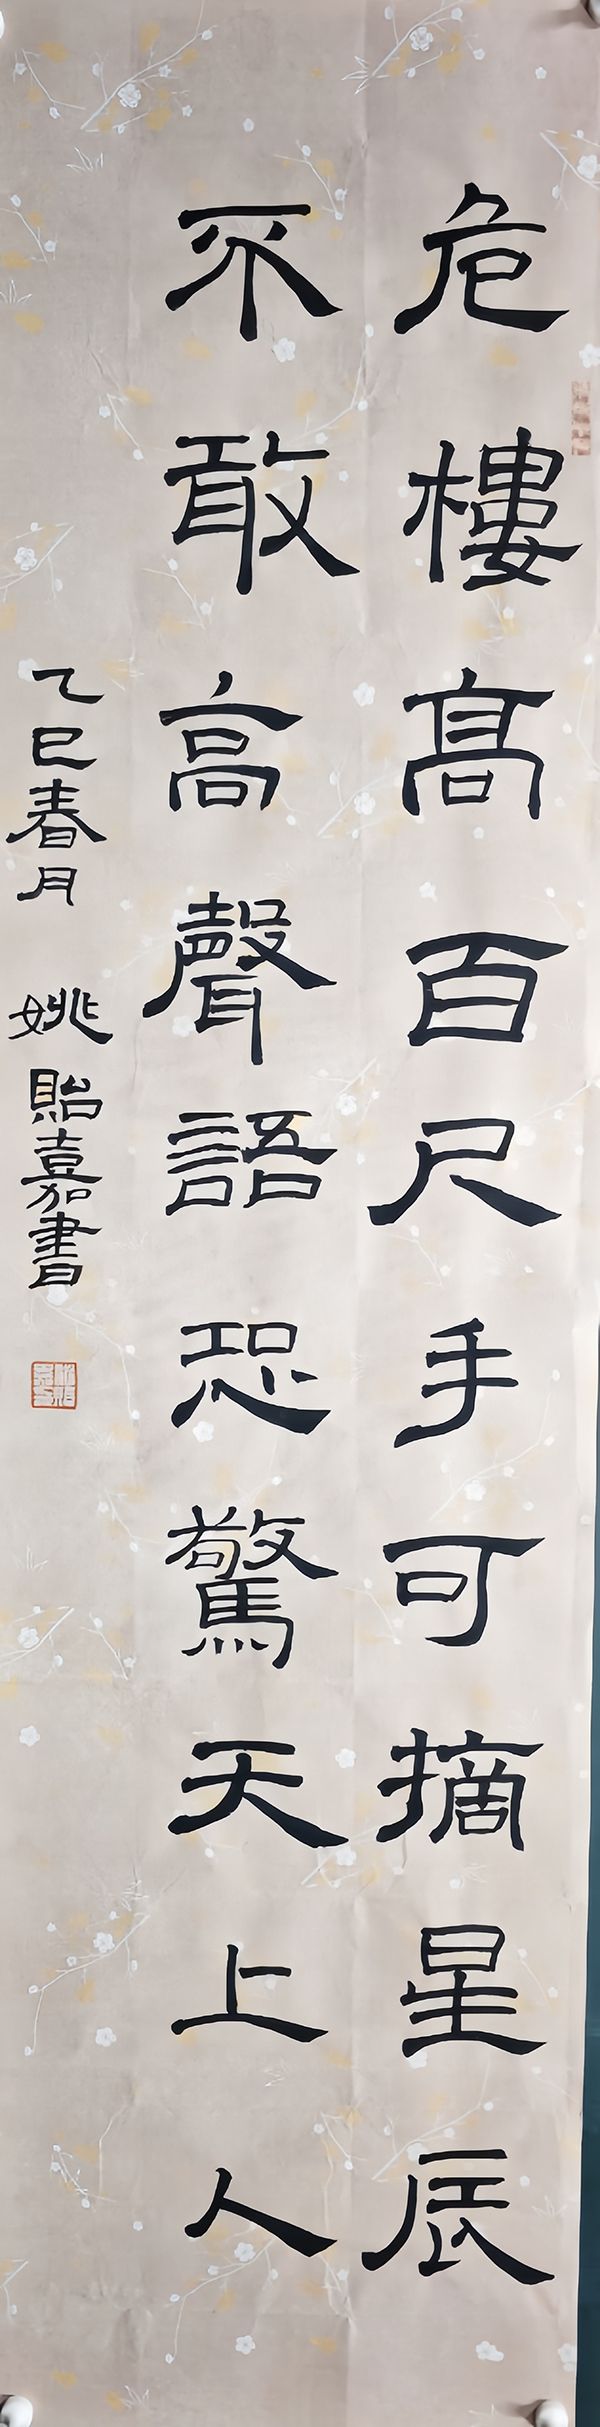 危樓髙百尺手可摘星辰
不敢高聲語恐驚天上人
乙巳春月 姚貽嘉書